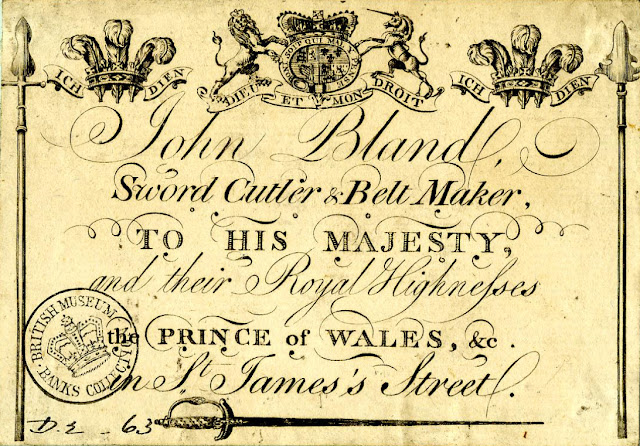 ICH DIEN
HONI SOIT QUI MAL Y PENSE
DIEU ET MON DROIT
ICH DIEN
John Bland,
Sword Cutler & Belt Maker,
TO HIS MAJESTY,
and their Royal Highneſses
the PRINCE of WALES, &c.
in St. James's Street.
BRITISH MUSEUM
BANKS COLLECTION
D.2 - 63